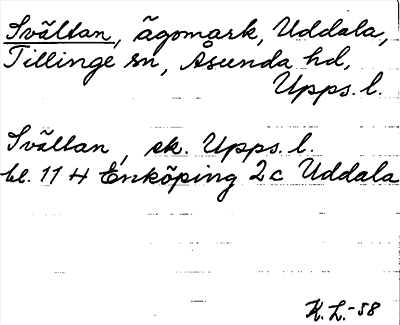 Svältan, ägomark, Uddala,
Tillinge sn, Åsunda hd,
Upps. l.
Svältan, sk. Upps. l.
bl. 11 H Enköping 2c Uddala
K. L. -58